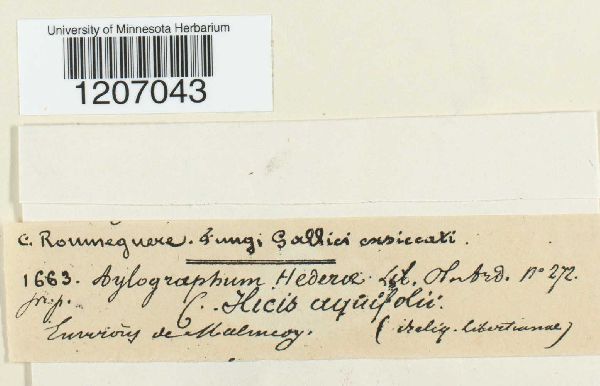 University of Minnesota Herbarium
1207043
C. Roumeguere. Fungi Gallici exsiccati.
1663. Aylographum Hederæ Lib. Ardd. nº 272.
f. Ilicis aquifolii.
Environs de Malmedy. (Reliq. Libertianae)